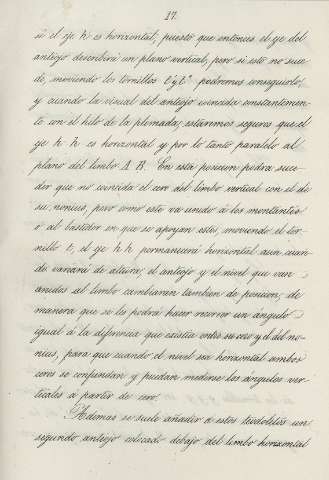 17.
si el eje h es horizontal, puesto que entonces el eje del
anteojo describirá un plano vertical, pero si esto no suce-
de, moviendo los tornillos t' y t'' podremos conseguirlo,
y cuando la visual del anteojo coincida constantemen-
te con el hilo de la plomada, estaremos seguros que el
eje h h es horizontal y por lo tanto paralelo al
plano del limbo A B. En esta posicion podrá suce-
der que no coincida el cero del limbo vertical con el de
su nonius, pero como este va unido á los montantes
ó al bastidor en que se apoyan estos, moviendo el tor-
nillo t, el eje h h permanecerá horizontal aun cuan-
do variára de altura; el anteojo y el nivel que van
unidos al limbo cambiarán tambien de posicion, de
manera que se les podrá hacer recorrer un ángulo
igual á la diferencia que existia entre su cero y el del no-
nius, para que cuando el nivel sea horizontal ambos
ceros se confundan y puedan medirse los ángulos ver-
ticales á partir de cero.
Ademas se suele añadir á estos teodolitos un
segundo anteojo colocado debajo del limbo horizontal